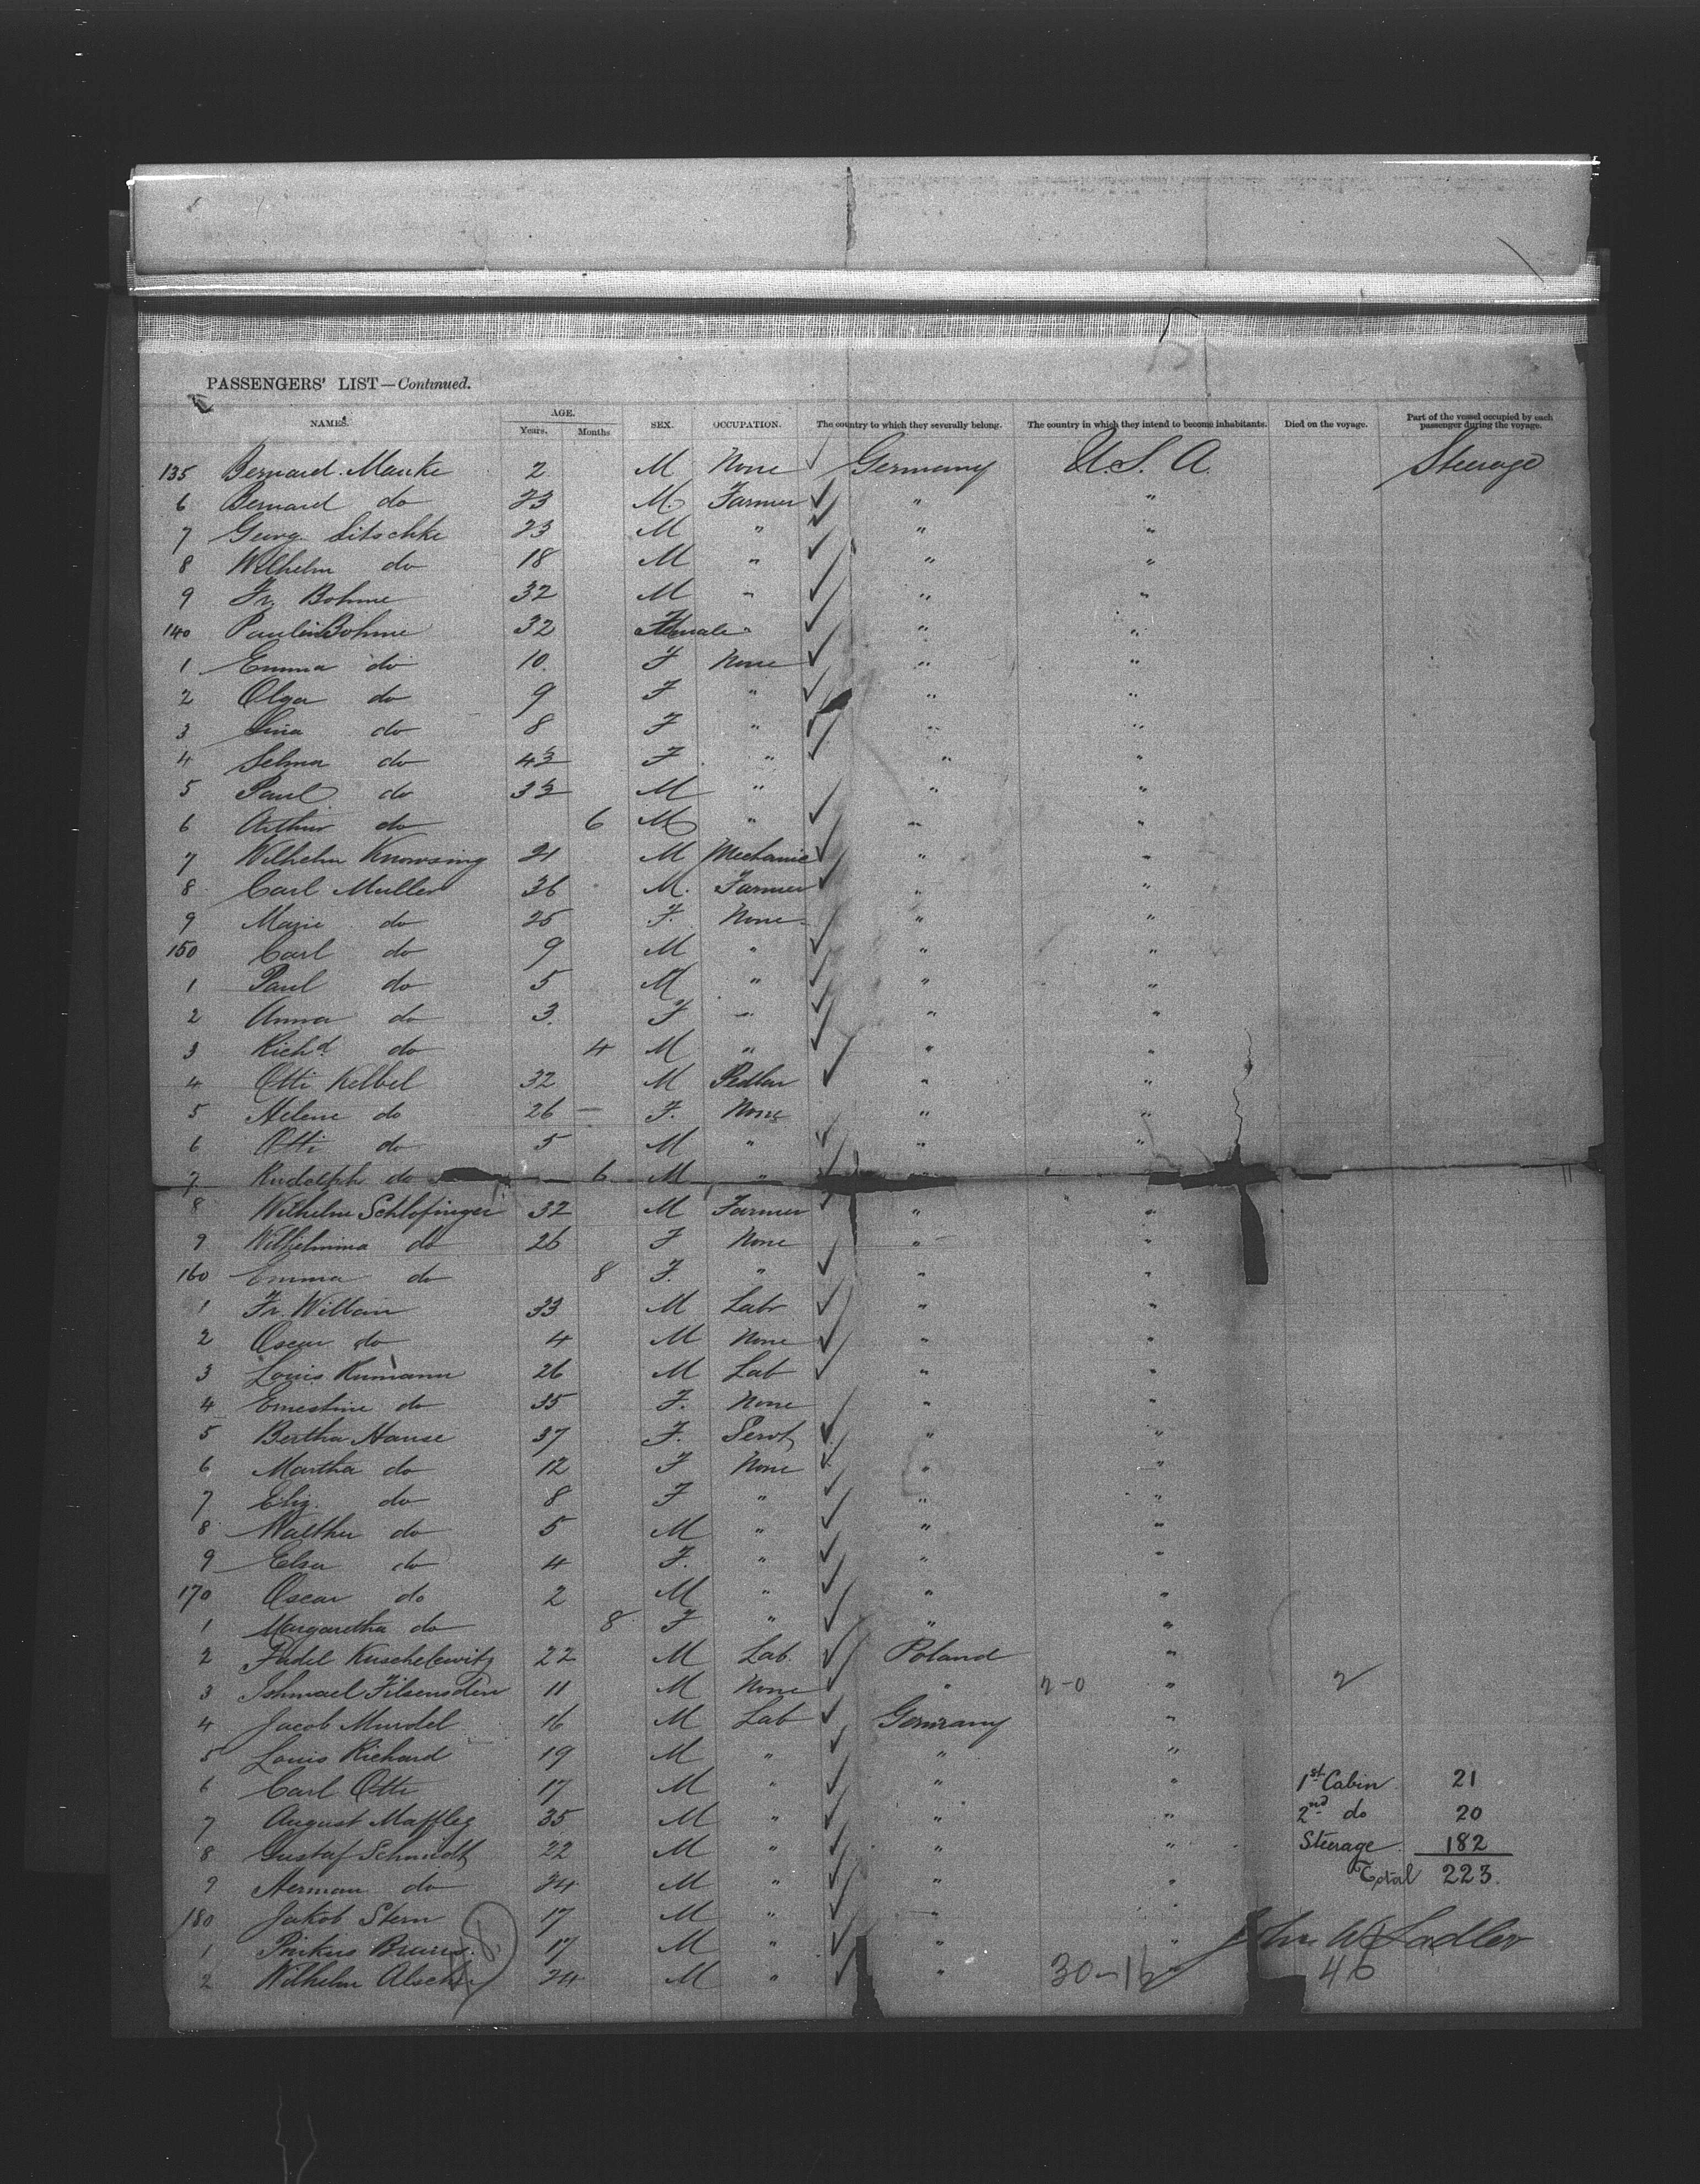 PASSENGERS' LIST—Continued.
NAMES. AGE. Years. Months SEX. OCCUPATION. The country to which they severally belong. The country in which they intend to become inhabitants. Died on the voyage. Part of the vessel occupied by each passenger during the voyage.
135 Bernard Manke 2 M None ✓ Germany U.S.A. Steerage
6 Bernard do 23 M. Farmer ✓ " "
7 Georg Litschke 23 M " ✓ " "
8 Wilhelm do 18 M " ✓ " "
9 Fr. Bohme 32 M " ✓ " "
140 Paulin Bohme 32 Female " ✓ " "
1 Emma do 10. F None ✓ " "
2 Olga do 9 F " ✓ " "
3 Lina do 8 F " ✓ " "
4 Selma do 4½ F " ✓ " "
5 Paul do 3½ M " " "
6 Arthur do 6 M " ✓ " "
7 Wilhelm Knowsing 21 M Mechanic ✓ " "
8 Carl Muller 36 M. Farmer ✓ " "
9 Marie do 25 F. None " "
150 Carl do 9 M " ✓ " "
1 Paul do 5 M " ✓ " "
2 Anna do 3. F " ✓ " "
3 Richd do 4 M " ✓ " "
4 Otti Kelbel 32 M Pedlar ✓ " "
5 Helene do 26 — F. None " "
6 Otti do 5 M " ✓ " "
7 Rudolph do 6 M " ✓ "
8 Wilhelm Schlofinger 32 M Farmer ✓ " "
9 Wilhelmina do 26 F None " "
160 Emma do 8 F. " ✓ " "
1 Fr. Willam 33 M Labr ✓ " "
2 Oscar do 4 M None ✓ " "
3 Louis Rumann 26 M Lab ✓ " "
4 Ernestine do 35 F. None " "
5 Bertha Hause 37 F. Servt ✓ " "
6 Martha do 12 F None ✓ " "
7 Eliz. do 8 F " ✓ " "
8 Walther do 5 M " ✓ " "
9 Elsa do 4 F. " ✓ " "
170 Oscar do 2 M " ✓ " "
1 Margaretha do 8 F " ✓ " "
2 Judel Kuschelewitz 22 M Lab. ✓ Poland "
3 Ishmael Filsensdein 11 M None ✓ " "
4 Jacob Murdel 16 M Lab ✓ Germany "
5 Louis Richard 19 M " ✓ " "
6 Carl Otti 17 M " ✓ " " 1st Cabin 21
7 August Maffleg 35 M " ✓ " " 2nd do 20
8 Gustaf Schmidt 22 M " ✓ " " Steerage 182
9 Herman do 24 M " ✓ " " Total 223.
180 Jakob Stern 17 M " ✓ " "
1 Pinkus Bruns 17 M " ✓ " " John W Sadler
2 Wilhelm 24 M " ✓ " 30-16 46